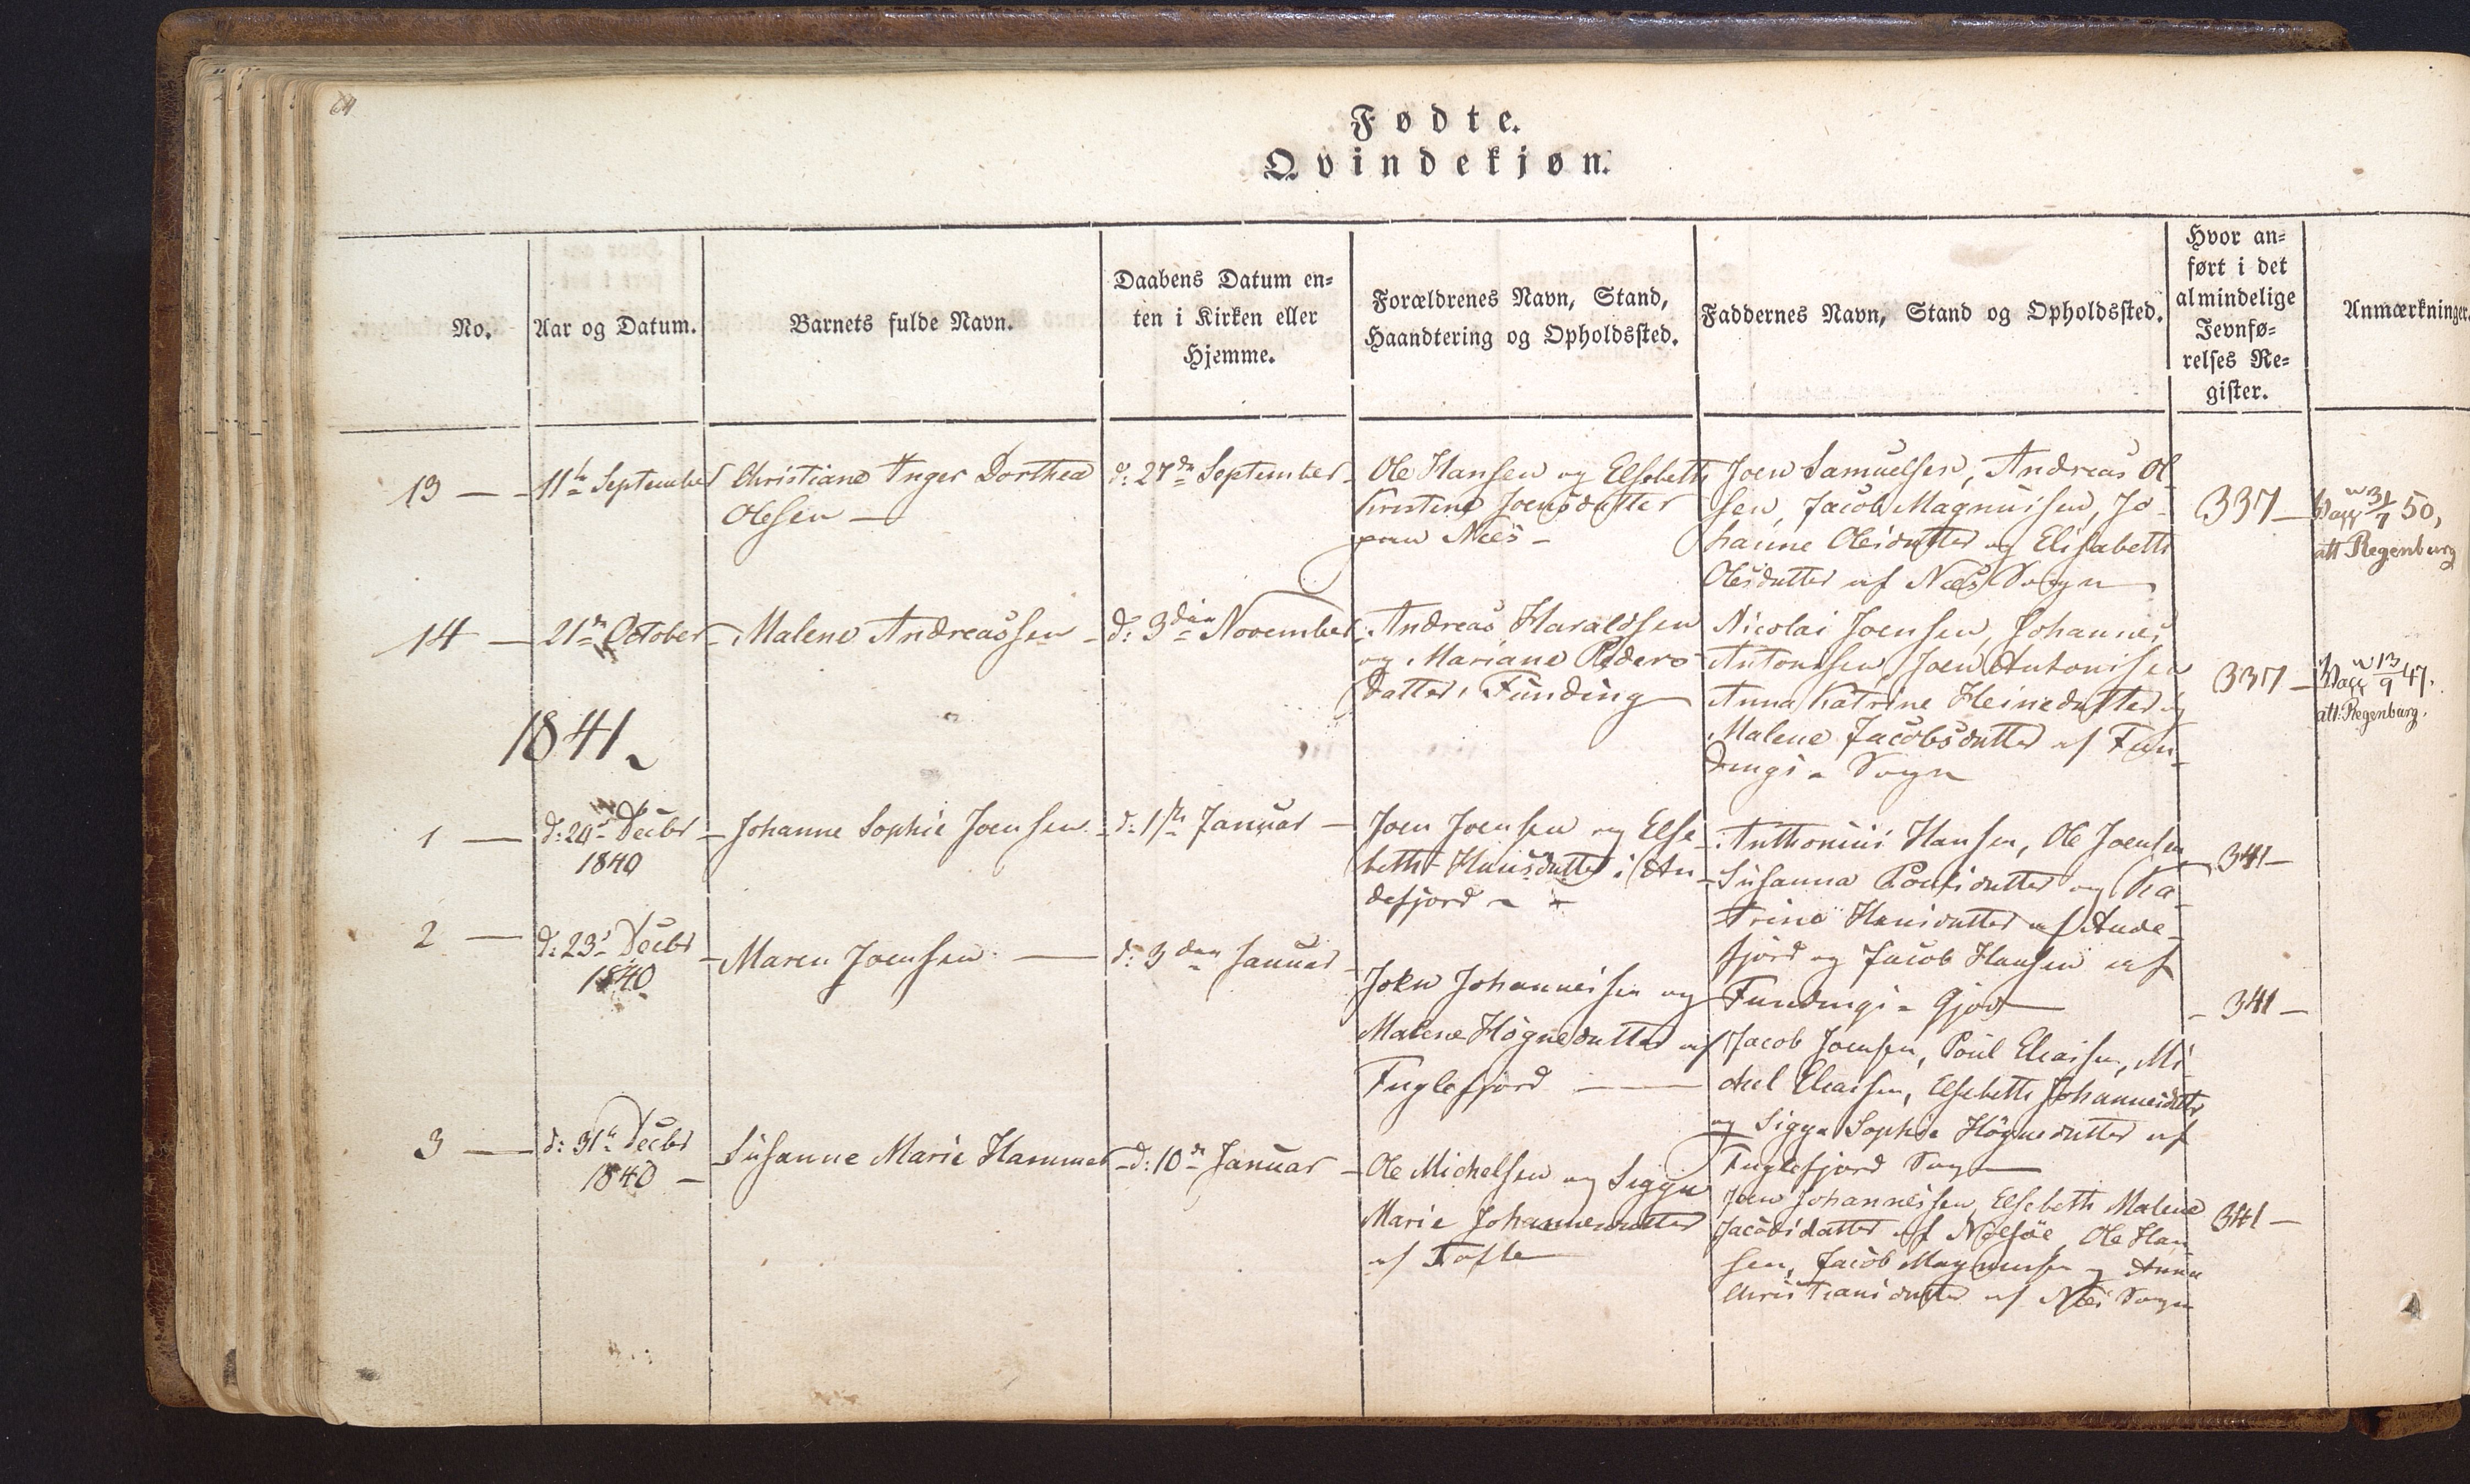 64
Fødte.
Qvindekjøn.
No.
Aar og Datum.
Barnets fulde Navn.
Daabens Datum en-
ten i Kirken eller
Hjemme.
Forældrenes Navn, Stand,
Haandtering og Opholdssted.
Faddernes Navn, Stand og Opholdssted.
Hvor an-
ført i det
almindelige
Jevnfø-
relses Re-
gister.
Anmærkninger.
13 —
11te September
Christiane Inger Dorthea
Olsen —
d: 27de September
Ole Hansen og Elsebeth
Kristine Joensdatter
paa Næs —
Joen Samuelsen, Andreas Ol-
sen, Jacob Magnussen, Jo-
hanne Olesdatter og Elisabeth
Olesdatter af Næs Sogn
337 —
Vacc 31/7 50,
att Regenburg
14 —
21de October
Malene Andreassen
d: 3die November
Andreas Haraldsen
og Mariane Peders
datter, Funding
Nicolai Joensen, Johannes
Antonisen, Joen Antonisen
Anna Katrine Heinedatter og
Malene Jacobsdatter af Fun-
dings Sogn
337 —
Vacc 13/9 47.
att: Regenburg.
1841.
1 —
d: 20 Decbr
1840
Johanne Sophie Joensen
d: 1ste Januar —
Joen Joensen og Else-
beth Hansdatter i An-
defjord
Anthonius Hansen, Ole Joensen
Susanna Poulsdatter og Ka-
trine Hansdatter af Ande-
fjord og Jacob Hansen af
Fundings Gjov
341 —
2 —
d: 23 Decbr
1840
Maren Joensen —
d: 3den Januar
Joen Johannesen og
Malene Høgnedatter af
Fuglefjord —
Jacob Joensen, Poul Eliasen, Mi-
chel Eliasen, Elsebeth Johannesdatter
og Sigga Sophie Høgnedatter af
Fuglefjord Sogn
341 —
3 —
d: 31te Decbr
1840 —
Susanne Marie Hammer
d: 10de Januar —
Ole Michelsen og Sigga
Marie Johannesdatter
af Tofte
Joen Johannessen, Elsebeth Malene
Jacobsdatter af Nolsøe, Ole Han-
sen, Jacob Magnussen og Anna
Christiansdatter af Næs Sogn
341 —